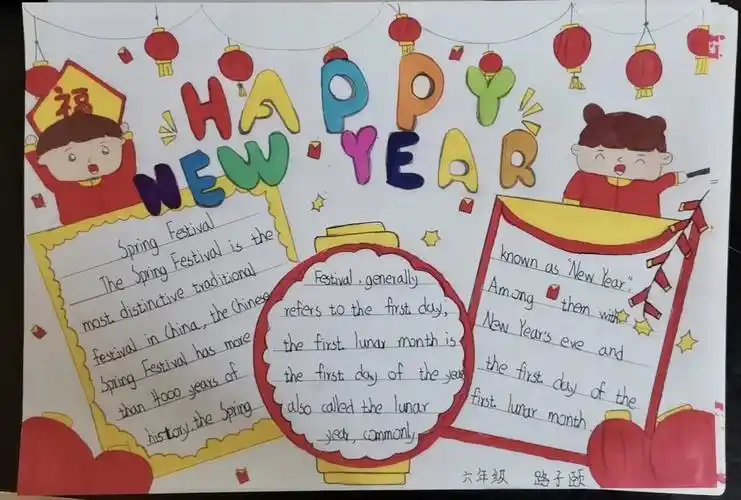 福
HAPPY
NEW YEAR
Spring Festival
The Spring Festival is the
most distinctive traditional
festival in China, the Chinese
Spring Festival has more
than 4000 years of
history. the Spring
Festival, generally
refers to the first day,
the first lunar month is
the first day of the year
also called the lunar
year, commonly
known as "New Year".
Among them with
New Year's eve and
the first day of the
first lunar month.
六年级 路子颐